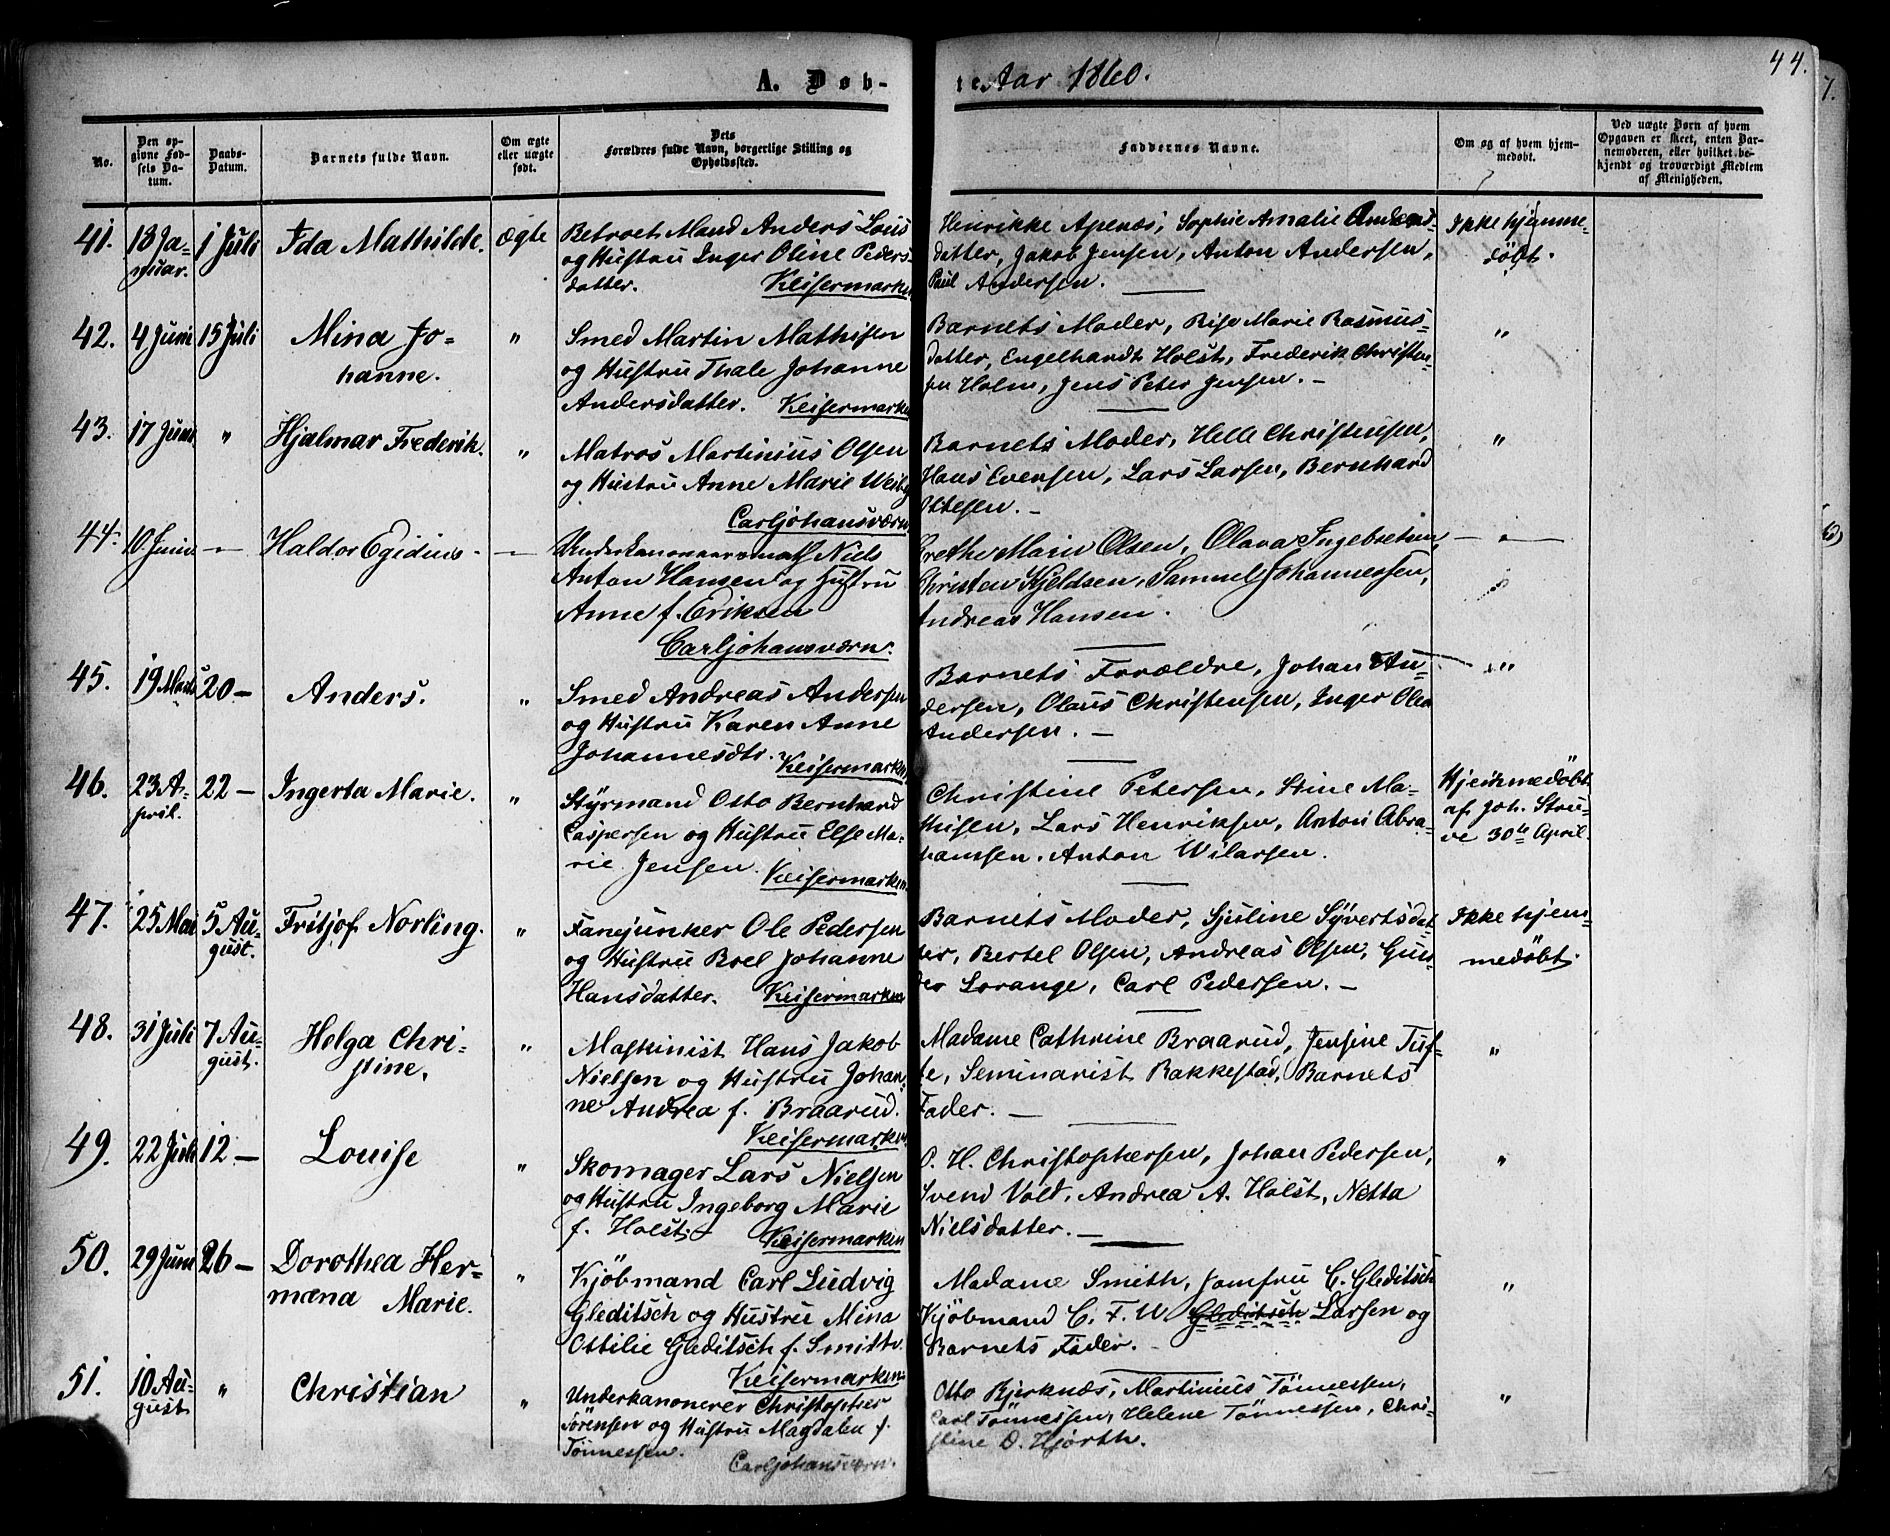 44.
A. Døb-
te Aar 1860.
No.
Den op-
givne Fød-
sels Da-
tum.
Daabs-
Datum.
Barnets fulde Navn.
Om ægte
eller uægte
født.
Dets
Forældres fulde Navn, borgerlige Stilling og
Opholdssted.
Faddernes Navne.
Om og af hvem hjem-
medøbt.
Ved uægte Børn af hvem
Opgaven er skeet, enten Bar-
nemoderen, eller hvilket be-
kjendt og troværdigt Medlem
af Menigheden.
41. 18 Ja-
nuar.
1 Juli
Ida Mathilde.
Ægte
Betroet Mand Anders Lous
og Hustru Inger Oline Peders-
datter. Keisermarken
Henrikke Apenæs, Sophie Amalie Anders-
datter, Jakob Jensen, Anton Andersen,
Paul Andersen.
Ikke hjemme-
döbt.
42. 4 Juni 15 Juli
Mina Jo-
hanne.
"
Smed Martin Mathisen
og Hustru Thale Johanne
Andersdatter. Keisermarken
Barnets Moder, Marie Rasmus-
datter, Engelhardt Holst, Frederik Christen-
sen Holm, Jens Peter Jensen. -
"
43. 17 Juni "
Hjalmar Frederik.
"
Matros Martinius Olsen
og Hustru Anne Marie
Carljohansværn
Barnets Moder, Helle Christensen,
Hans Evensen, Lars Larsen, Bernhard
Ottesen. -
"
44. 10 Juni -
Haldor Egidius -
-
Underkanoneer Niels
Anton Hansen og Hustru
Anne f. Eriksen
Carljohansværn.
Grethe Marie Olsen, Olava Ingebretsen,
Christen Kjeldsen, Samuel Johannessen,
Andreas Hansen.
- " -
45. 19 Marts 20 -
Anders.
"
Smed Andreas Andersen
og Hustru Karen Anne
Johannesdtr. Keisermarken
Barnets Forældre, Johan An-
dersen, Olaus Christensen, Inger Olea
Andersen. -
"
46. 23 A-
pril.
22 -
Ingerta Marie.
"
Styrmand Otto Bernhard
Caspersen og Hustru Else Ma-
rie Jensen. Keisermarken
Christine Petersen, Stine Ma-
thisen, Lars Henriksen, Anton Abra-
hamsen, Anton Wilarsen.
Hjemmedøbt
af Joh. Stru-
ve 30te April.
47. 25 Mai 5 Au-
gust.
Fritjof Norling.
"
Fanejunker Ole Pedersen
og Hustru Boel Johanne
Hansdatter. Keisermarken
Barnets Moder, Sjuline Syvertsdat-
ter, Bertel Olsen, Andreas Olsen, Gun-
der Lorange, Carl Pedersen. -
Ikke hjem-
medöbt.
48. 31 Juli 7 Au-
gust.
Helga Chri-
stine.
"
Maskinist Hans Jakob
Nielsen og Hustru Johan-
ne Andrea f. Braarud.
Keisermarken
Madame Cathrine Braarud, Jensine Tuf-
te, Seminarist Bakkestad, Barnets
Fader. -
"
49. 22 Juli 12 -
Louise
"
Skomager Lars Nielsen
og Hustru Ingeborg Marie
f. Holst. Keisermarken
P. H. Christophersen, Johan Pedersen,
Svend Vold, Andrea A. Holst, Netta
Nielsdatter. -
"
50. 29 Juni 26 -
Dorothea Her-
mæna Marie.
"
Kjöbmand Carl Ludvig
Gleditsch og Hustru Mina
Ottilie Gleditsch f. Smith.
Keisermarken
Madame Smith, Jomfru C. Gleditsch
Kjöbmand C. F. W. Gleditsch Larsen og
Barnets Fader. -
"
51. 10 Au-
gust
"
Christian
"
Underkanonerer Christopher
Sörensen og Hustru Magdalen f.
Tönnessen. Carljohansværn.
Otto Bjerknæs, Martinius Tönnessen,
Carl Tönnessen, Helene Tönnessen, Chri-
stine O. Hjorth.
"